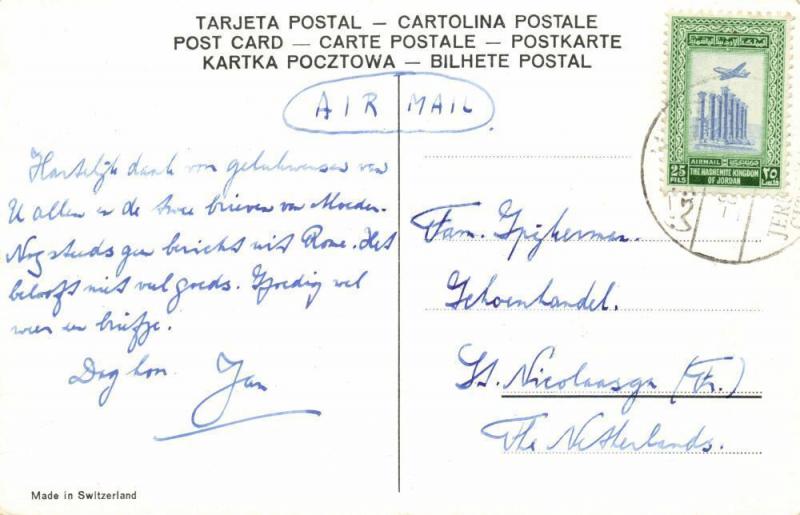 TARJETA POSTAL — CARTOLINA POSTALE
POST CARD — CARTE POSTALE — POSTKARTE
KARTKA POCZTOWA — BILHETE POSTAL
AIR MAIL
Hartelijk dank von gelukwensen van
U allen en de twee brieven van Moeder.
Nog steeds geen bericht uit Rome. Het
belooft niet veel goeds. Spoedig wel
weer en briefje.
Dag hoor Jan
Made in Switzerland
AIRMAIL
25
FILS
THE HASHEMITE KINGDOM
OF JORDAN
٢٥
Fam. Spijkerman.
Schoenhandel.
St. Nicolaasga (Fr.)
The Netherlands.
JER